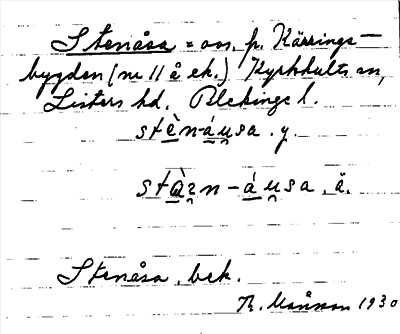 Stenåsa = oms. på Kärrings-
bygden (nr 11 å ek.) Kyrkhults sn,
Listers hd. Blekinge l.
stèn-áusa. y.
stàrn-áusa. ä.
Stenåsa. bek.
Månsson 1930